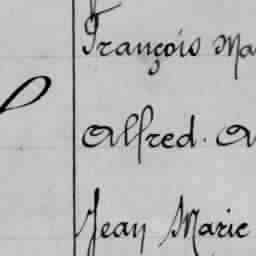 François Ma
Alfred. A
Jean Marie